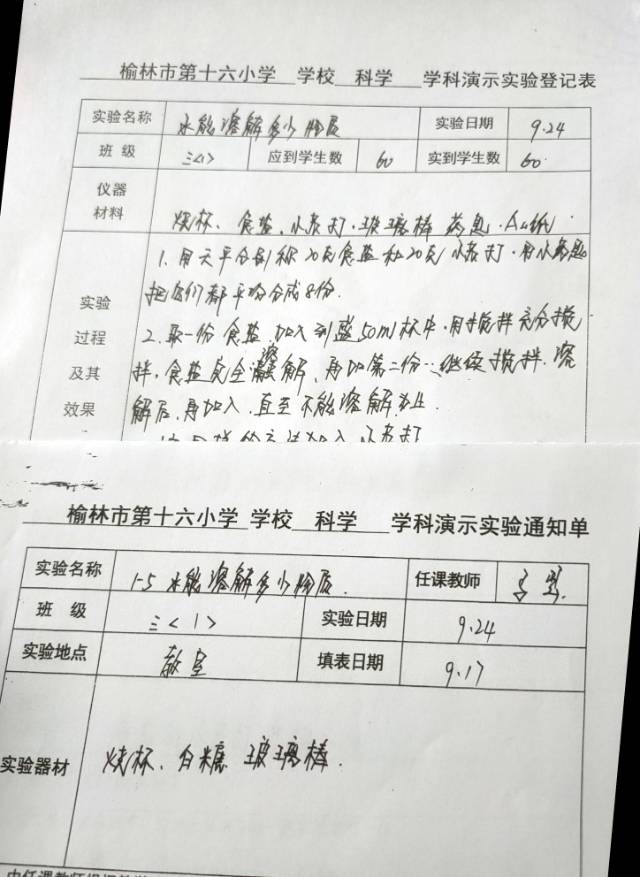 榆林市第十六小学 学校 科学 学科演示实验登记表
实验名称 水能溶解多少物质 实验日期 9.24
班 级 三<1> 应到学生数 60 实到学生数 60
仪器材料 烧杯、食盐、小苏打、玻璃棒 药匙、A4纸
实验过程及其效果
1. 用天平分别称20克食盐和20克小苏打,用小药匙
把它们都平均分成8份.
2. 取一份食盐加入到盛50ml杯中,用搅拌充分搅
拌,食盐完全溶解,再加第二份…继续搅拌.溶
解后,再加入,直至不能溶解为止.
加入小苏打
榆林市第十六小学 学校 科学 学科演示实验通知单
实验名称 1-5 水能溶解多少物质. 任课教师
班 级 三<1> 实验日期 9.24
实验地点 教室 填表日期 9.17
实验器材 烧杯、白糖 玻璃棒.